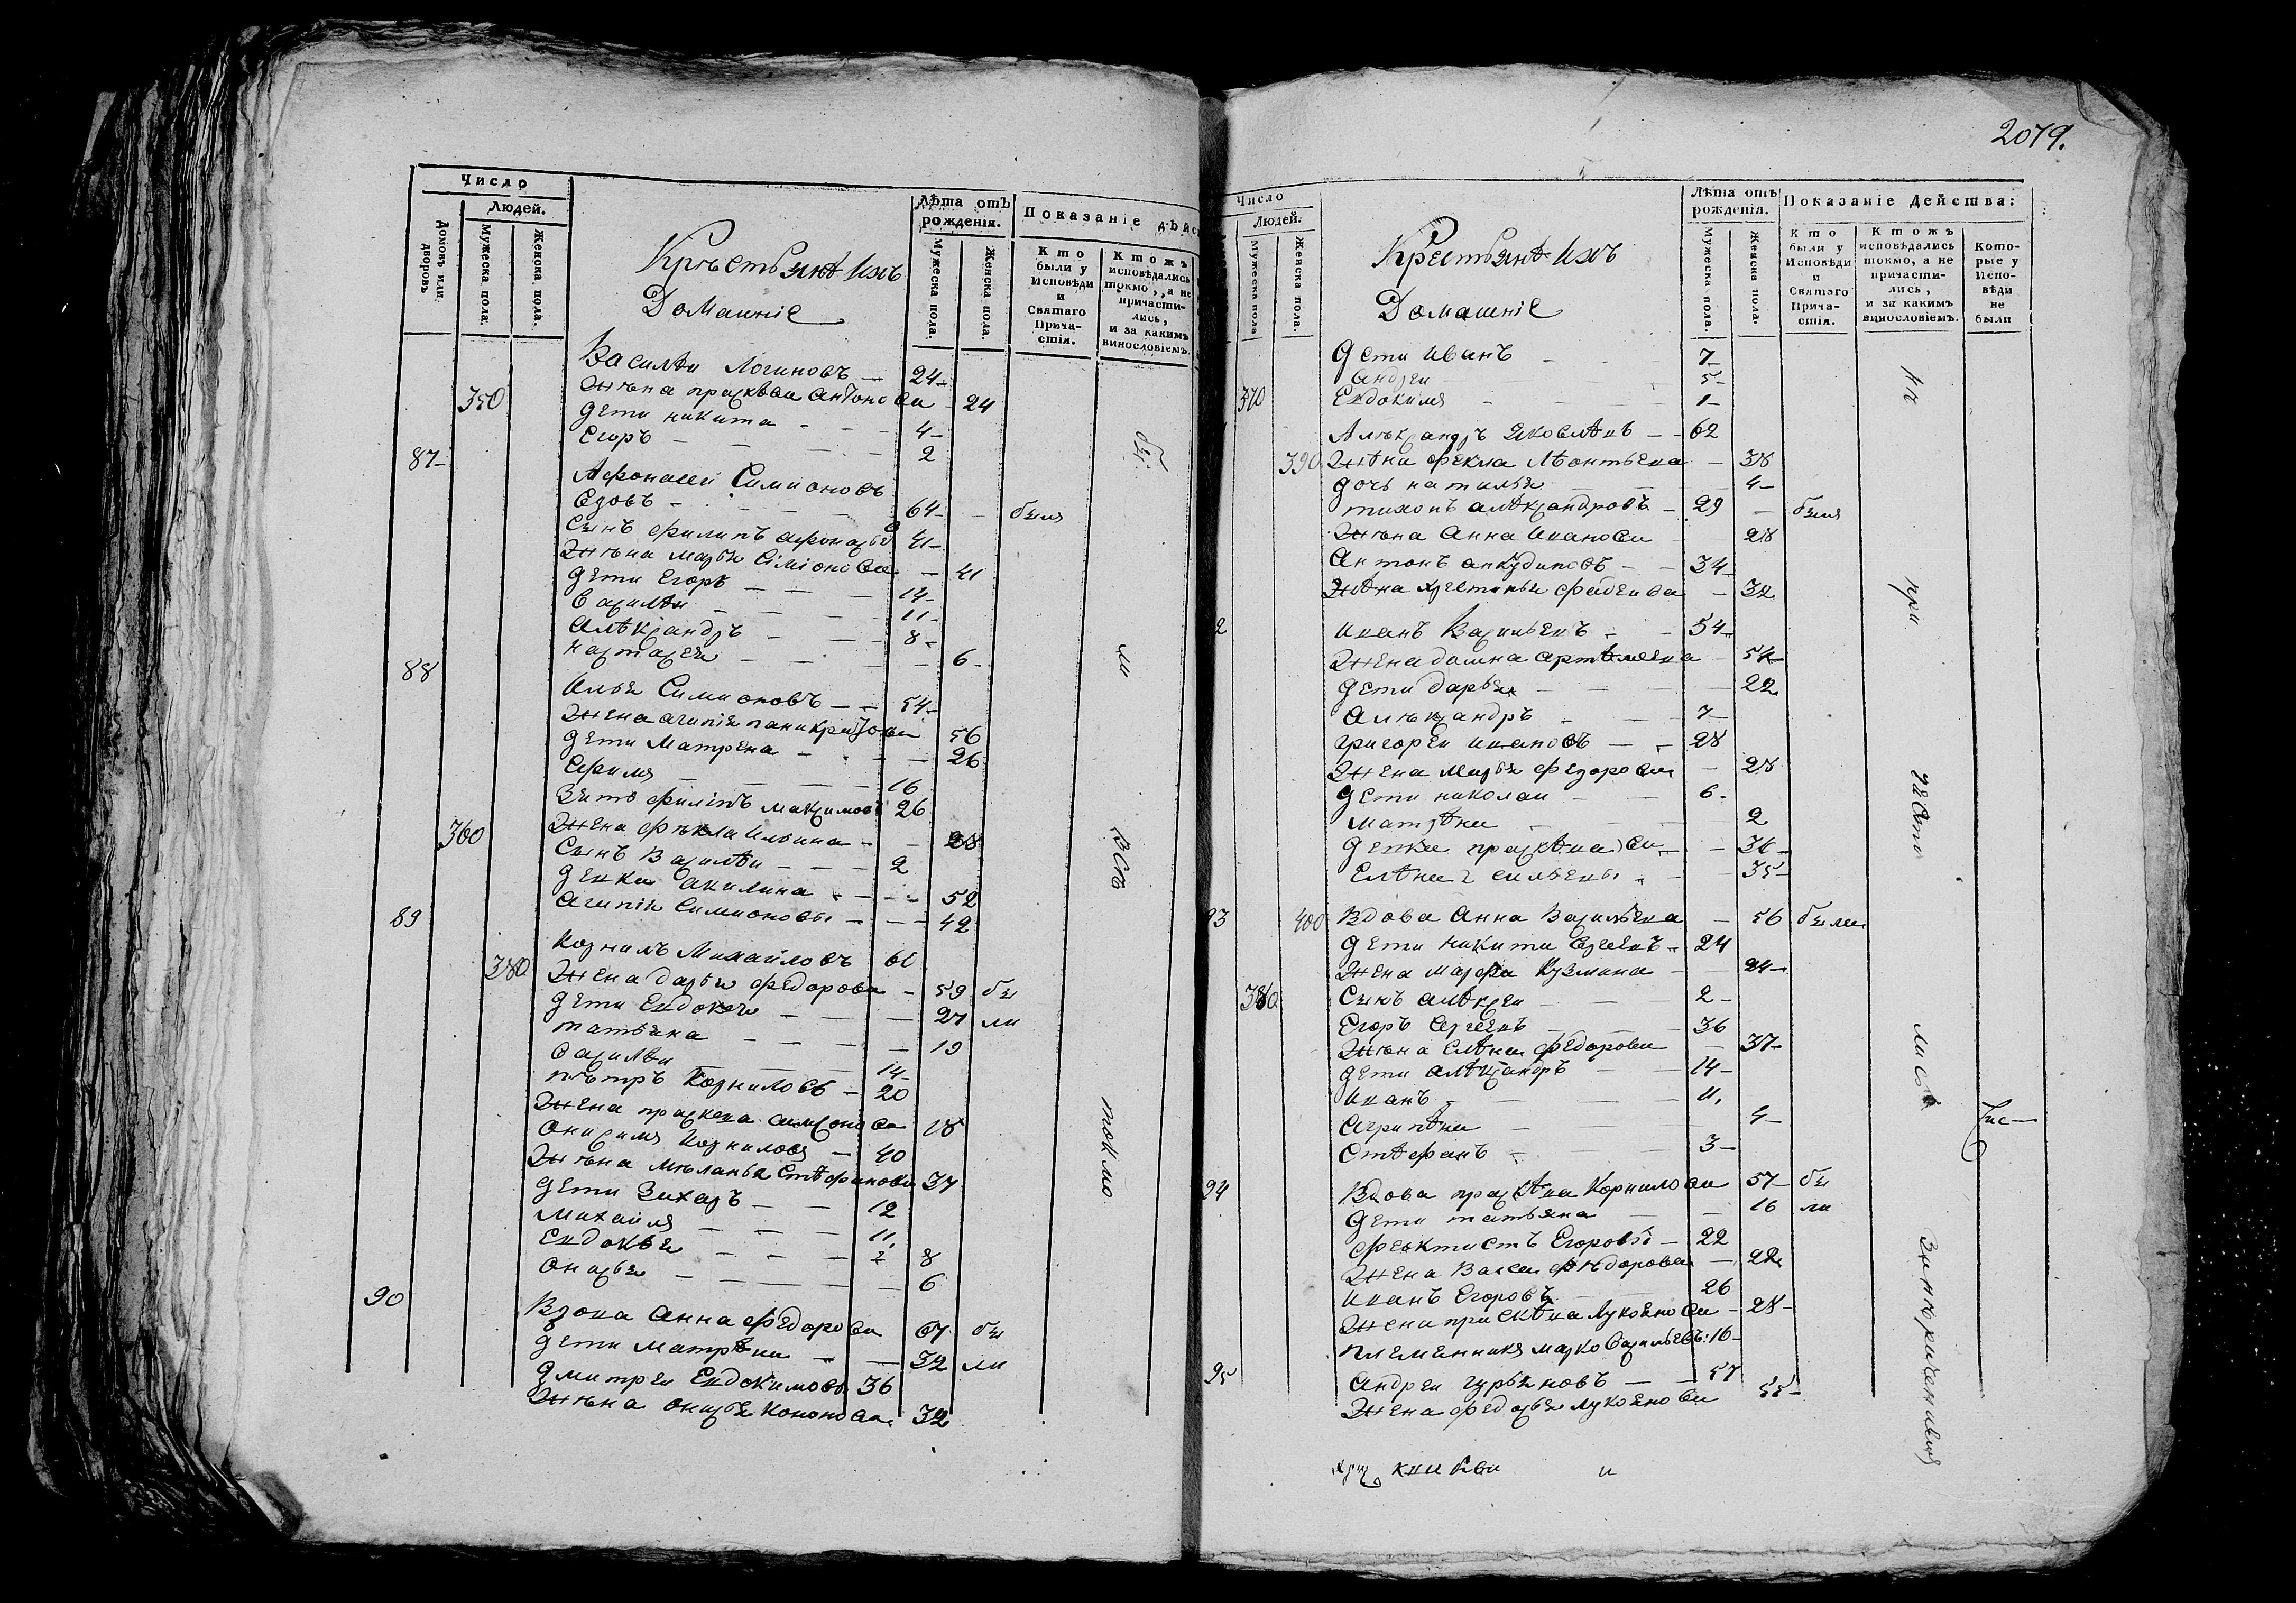 Число
Людей.
Домовъ или дворовъ
Мужеска пола.
Женска пола.
Крѣстьянѣ Ихъ
Домашніе
Лѣта отъ рожденія.
Мужеска пола.
Женска пола.
Показаніе дѣйс
Кто были у Исповѣди и Святаго Причастія.
Ктожъ исповѣдались токмо, а не причастились, и за какимъ винословіемъ.
Василѣи Логиновъ — 24
350 Жѣна прасковѣи Антонова 24
дети никита 4
Егоръ 2
87
Афонасеи Симионовъ
вдовъ 64 былъ
Сынъ филипъ афонасье 41
Жѣна марья Симионова 41
дети Егоръ 14
василѣи 11
Алѣксандръ 8
настасея 6
88
Илья Симионовъ 54
Жена агипія паникратова 56
дети Матрена 26
Ефимъ 16
Зять филипъ макимовъ 26
360 Жена фѣкла Ильина 28
Сынъ Василѣи 2
девки акилина 52
Агипія Симионовы 42
89
Корнилъ Михаиловъ 60
380 Жена дарья федорова 59 бы
дети Евдокея 27 ли
татьяна 19
василѣи 14
пѣтръ Корниловъ 20
Жена прасковя симионова 18
Онисимъ Корниловъ 40
Жѣна мѣланья Стѣфанова 37
дети Захаръ 12
Михаилъ 11
Евдокѣя 8
Онасья 6
90
Вдова Анна федорова 67 бы
дети матрѣна 32 ли
дмитреи Евдокимовъ 36
Жѣна онисья Кононова 32
бы
ли
всѣ
токмо
2079.
Число
Людей.
Мужеска пола
Женска пола.
Крестьянѣ Ихъ
Домашніе
Лѣта отъ рожденія.
Мужеска пола.
Женска пола.
Показаніе Действа:
Кто были у Исповѣди и Святаго Причастія.
Ктожъ исповѣдались токмо, а не причастились, и за какимъ винословіемъ.
Которые у Исповѣди не были
дети Иванъ 7
Андреи 5
370 Евдокимъ 1
Алѣксандръ Яковлѣвъ 62
390 Жѣна фекла Лѣонтьева 38
дочь наталья 4
тихонъ алѣксандровъ 29 былъ
Жѣна Анна Иванова 28
Антонъ анкудиновъ 34
Жѣна хрестинья фадеива 32
2
Иванъ Васильевъ 54
Жена домна артѣмьева 54
дети дарья 22
Алѣксандръ 7
григореи ивановъ 28
Жена марья федорова 28
дети николаи 6
Матрѣна 2
девки 36
Елѣна 35
93 400 Вдова Анна Васильева 56 были
дети никита Сергеевъ 24
Жена марфа Кузмина 24
380 Сынъ алѣксеи 2
Егоръ Сергеевъ 36
Жѣна Елѣна федорова 37
дети алѣксандръ 14
Иванъ 11
Агрипѣна 4
Стѣфанъ 3
94
Вдова прасковѣа Корнилова 57 бы
дети татьяна 16 ли
феоктистъ Егоровъ 22
Жена Васса фѣдорова 22
Иванъ Егоровъ 26
Жена Лукоянова 28
племянникъ марко васильевъ 16
95
Андреи гурьяновъ 57
Жена федосья лукоянова 55
не
при
часи
лись